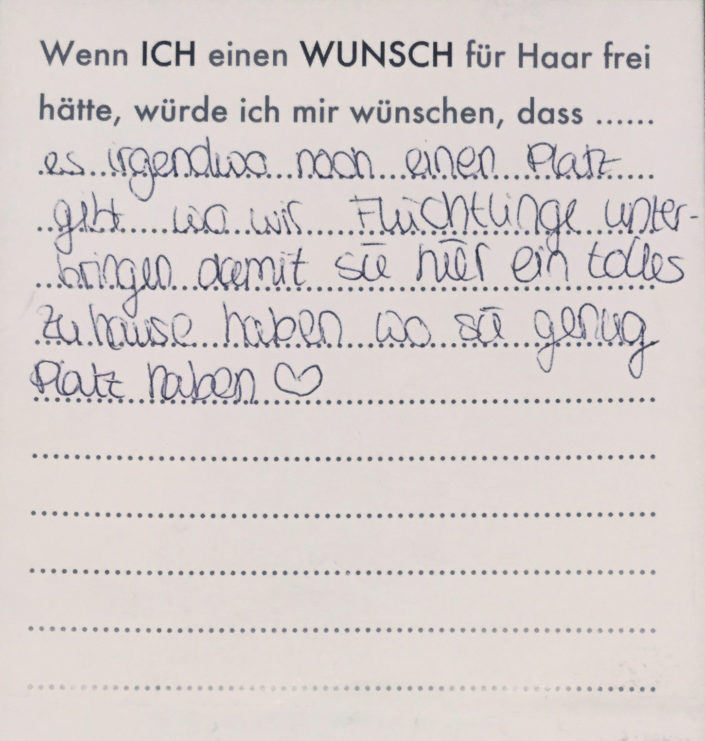 Wenn ICH einen WUNSCH für Haar frei
hätte, würde ich mir wünschen, dass ......
es irgendwo noch einen Platz
gibt wo wir Flüchtlinge unter-
bringen damit sie hier ein tolles
zuhause haben wo sie genug
Platz haben ♡